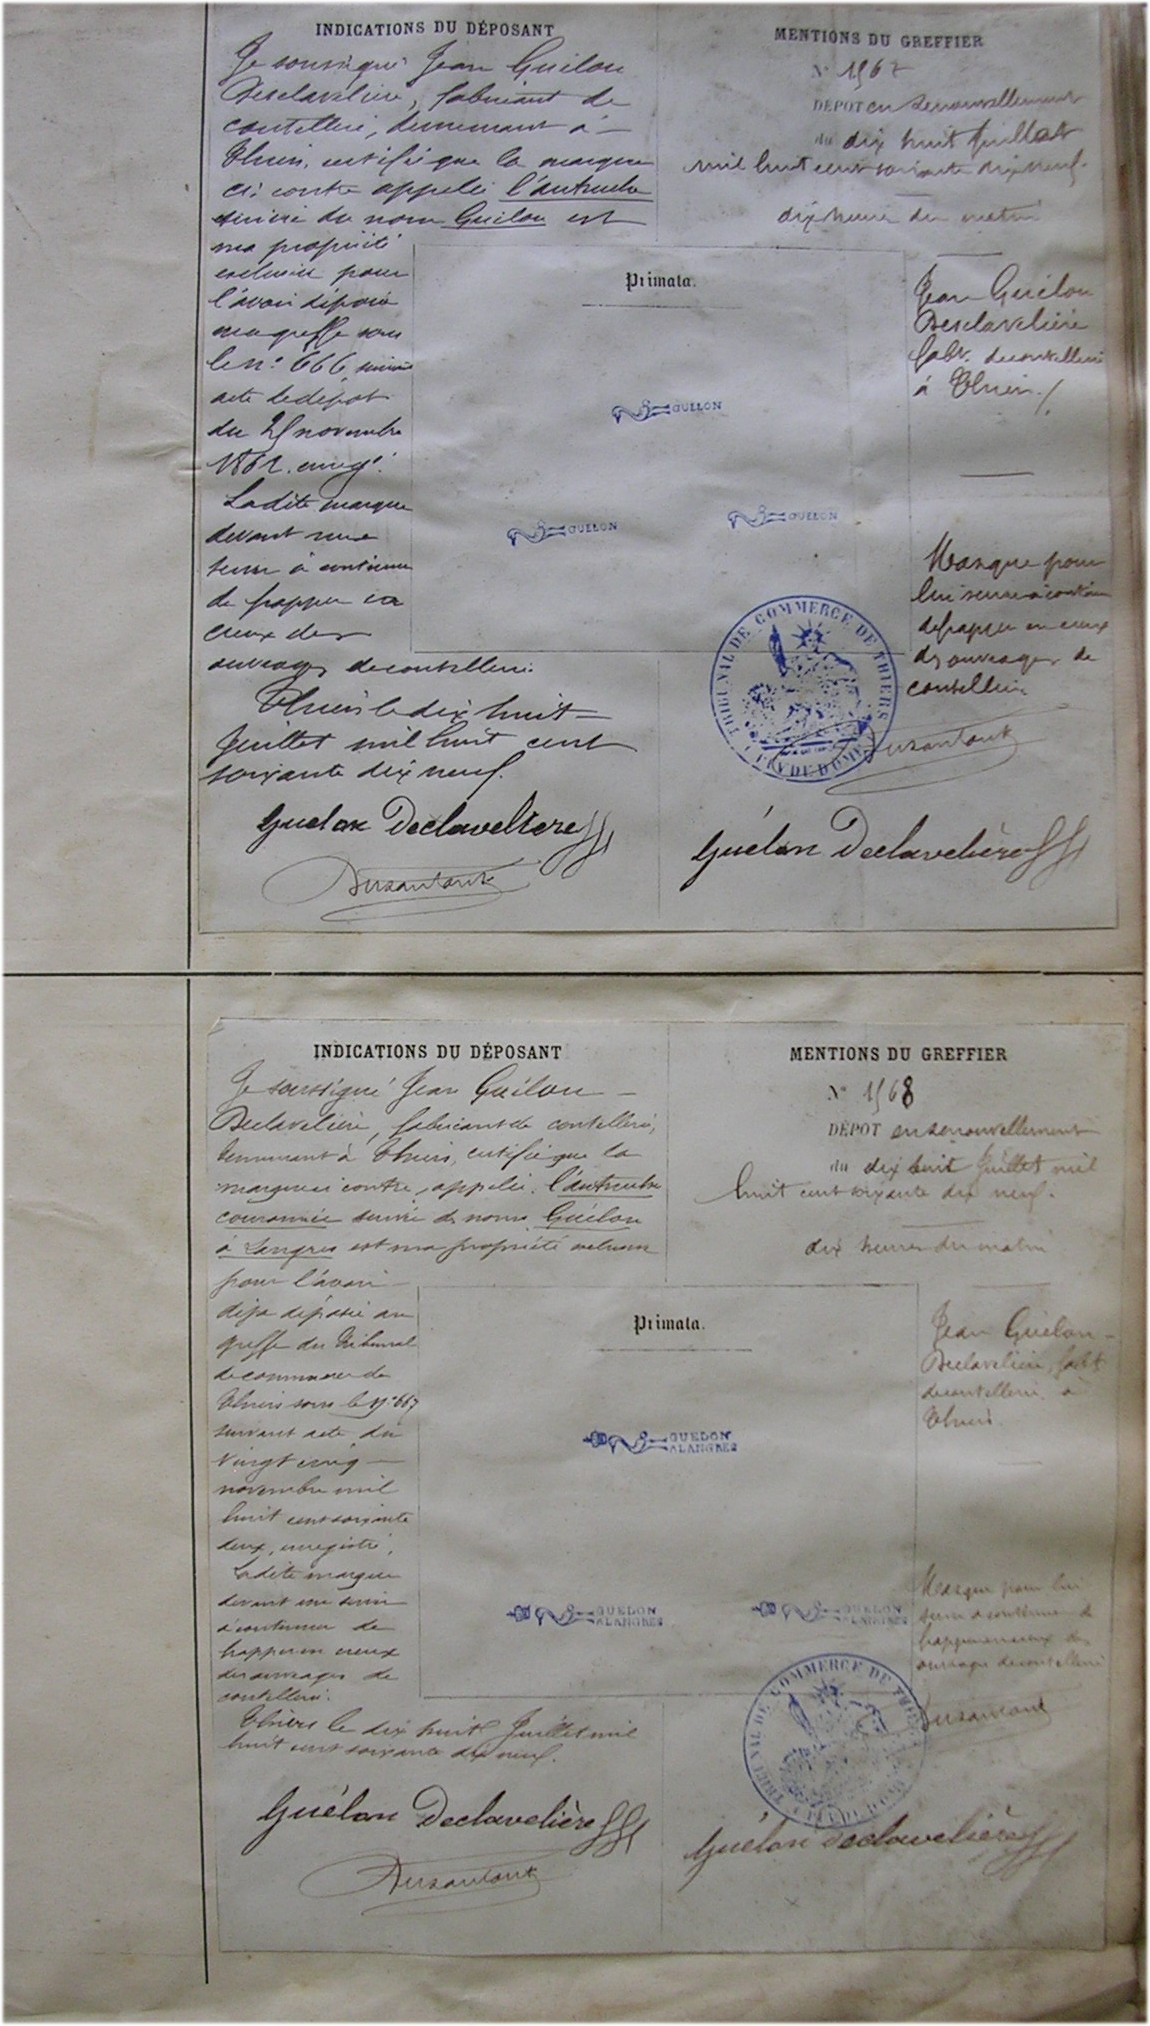 INDICATIONS DU DÉPOSANT
Je soussigné Jean Guélon
Desclavelière, fabricant de
coutellerie, demeurant à
Thiers, certifie que la marque
ci contre appelée l'autruche
suivie du nom Guélon est
ma propriété
exclusive pour
l'avoir déposé
au greffe sous
le n° 666 suivant
acte de dépôt
du 25 novembre
1862. enreg.
La dite marque
devant me
servir à continuer
de frapper en
creux des
ouvrages de coutellerie.
Thiers le dix huit
Juillet mil huit cent
soixante dix neuf.
Guelon Declaveliere
Dusautant
MENTIONS DU GREFFIER
N° 1567
DÉPOT en renouvellement
du dix huit Juillet
mil huit cent soixante dix neuf.
dix heures du matin
Primata.
GUELON
GUELON
GUELON
Jean Guélon
Desclavelière
fabt. de coutellerie
à Thiers.
Marque pour
lui servir à continuer
de frapper en creux
des ouvrages de
coutellerie
TRIBUNAL DE COMMERCE DE THIERS
PUY DE DOME
Dusautant
Guélon Declavelière
INDICATIONS DU DÉPOSANT
Je soussigné Jean Guélon
Declavelière, fabricant de coutellerie,
demeurant à Thiers, certifie que la
marque ci contre, appelée l'autruche
couronnée suivie du nom Guélon
à Langres est ma propriété exclusive
pour l'avoir
déja déposée au
greffe du Tribunal
de commerce de
Thiers sous le n° 667
suivant acte du
vingt cinq
novembre mil
huit cent soixante
deux, enregistré.
La dite marque
devant me servir
à continuer de
frapper en creux
des ouvrages de
coutellerie.
Thiers le dix huit Juillet mil
huit cent soixante dix neuf.
Guélon Declavelière
Dusautant
MENTIONS DU GREFFIER
N° 1568
DÉPOT en renouvellement
du dix huit Juillet mil
huit cent soixante dix neuf.
dix heures du matin
Primata.
GUELON
A LANGRES
GUELON
A LANGRES
GUELON
A LANGRES
Jean Guélon
Declavelière, fabt
de coutellerie à
Thiers.
Marque pour lui
servir à continuer de
frapper en creux des
ouvrages de coutellerie
TRIBUNAL DE COMMERCE DE THIERS
PUY DE DOME
Dusautant
Guélon Declavelière